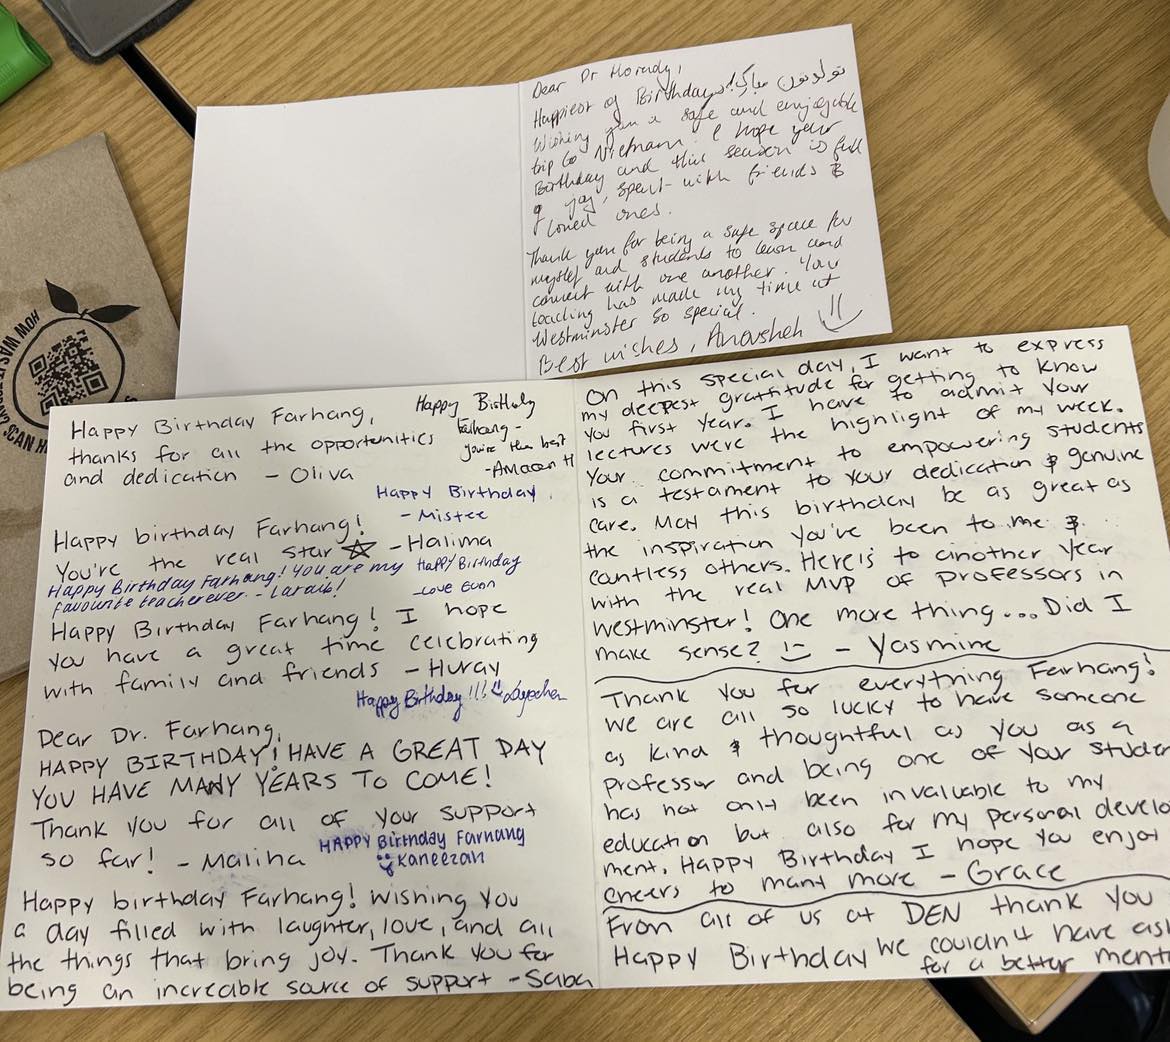 Dear Dr Horudy,
Happiest of Birthdays! تولدتون مبارک!
Wishing you a safe and enjoyable
trip to Vietnam. I hope your
Birthday and this season is full
of joy, spent with friends &
loved ones.
Thank you for being a safe space for
myself and students to learn and
connect with one another. Your
teaching has made my time at
Westminster so special.
Best wishes, Anousheh
Happy Birthday Farhang,
thanks for all the opportunities
and dedication - Oliva
Happy Birthday
Farhang -
you're the best
- Amaan H
Happy Birthday.
- Mistee
Happy birthday Farhang!
You're the real star - Halima
Happy Birthday Farhang! You are my
favourite teacher ever. - Laraib!
Happy Birthday
- Love Evan
Happy Birthday Farhang! I hope
you have a great time celebrating
with family and friends - Huray
Happy Birthday!!!
Dear Dr. Farhang,
HAPPY BIRTHDAY! HAVE A GREAT DAY
YOU HAVE MANY YEARS TO COME!
Thank you for all of your support
so far! - Maliha
HAPPY Birthday Farhang
Kaneezah
Happy birthday Farhang! Wishing you
a day filled with laughter, love, and all
the things that bring joy. Thank you for
being an increable source of support - Saba
On this special day, I want to express
my deepest gratitude for getting to know
you first year. I have to admit your
lectures were the highlight of my week.
Your commitment to empowering students
is a testament to your dedication & genuine
care. May this birthday be as great as
the inspiration you've been to me &
countless others. Here's to another year
with the real MVP of professors in
Westminster! One more thing... Did I
make sense? :) - Yasmine
Thank you for everything Farhang!
we are all so lucky to have someone
as kind & thoughtful as you as a
professor and being one of your studen
has not only been invaluable to my
education but also for my personal develo
ment. Happy Birthday I hope you enjoy
cheers to many more - Grace
From all of us at DEN thank you
Happy Birthday we couldn't have as
for a better ment
HOW WAS
SCAN